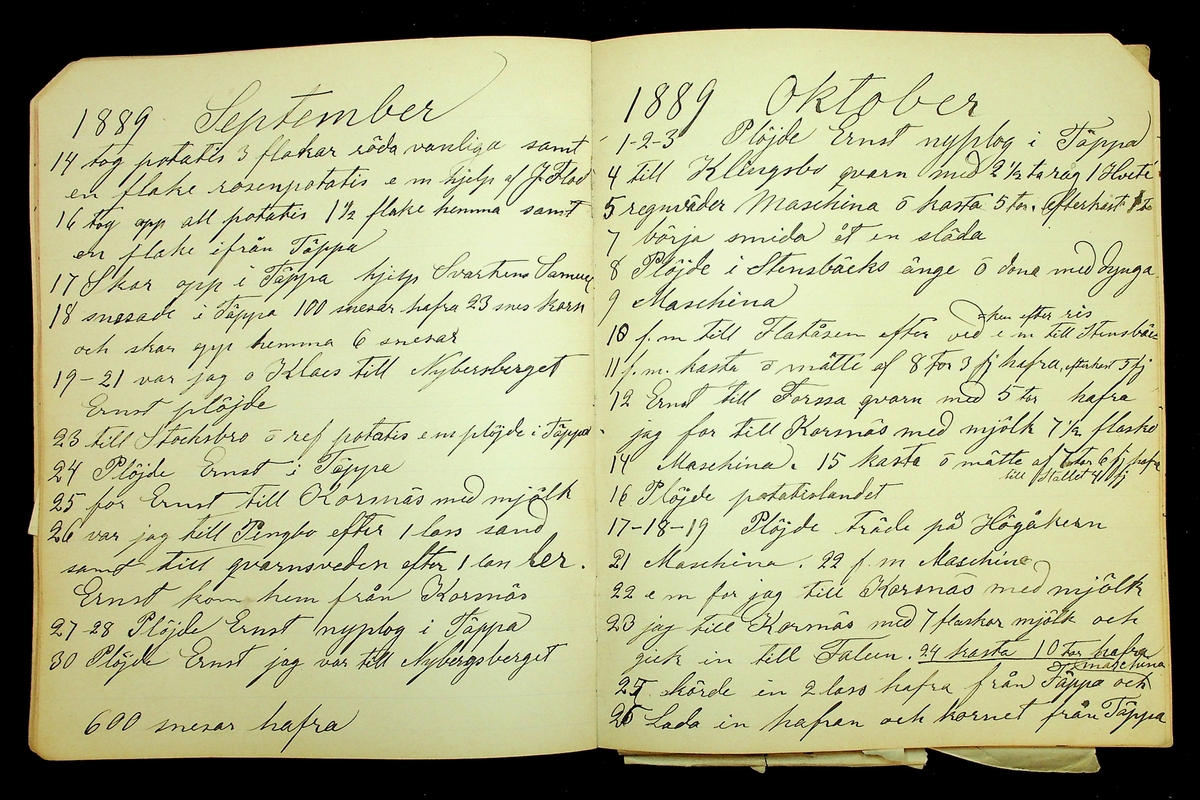 1889 September
14 tog potatis 3 flakar röda vanliga samt
en flake rosenpotatis e m hjelp af J. Flod
16 tog opp all potatis 1 1/2 flake hemma samt
en flake ifrån Täppa
17 Skar opp i Täppa hjelp Svartens Samuel
18 snesade i Täppa 100 snesar hafra 23 snes korn
och skar opp hemma 6 snesar
19-21 var jag o Klaes till Nybersberget
Ernst plöjde
23 till Stocksbro o ref potatis e m plöjde i Täppa
24 Plöjde Ernst i Täppa
25 for Ernst till Korsnäs med mjölk
26 var jag till Pengbo efter 1 lass sand
samt till qvarnsveden efter 1 lass ler.
Ernst kom hem från Korsnäs
27 28 Plöjde Ernst nyplog i Täppa
30 Plöjde Ernst jag var till Nybergsberget
600 snesar hafra
1889 Oktober
1-2-3 Plöjde Ernst nyplog i Täppa
4 till Klingsbo qvarn med 2 1/2 ta råg 1 Hvete
5 regnväder Maschina o kasta 5 tor. efterkast
7 börja smida åt en släda
8 Plöjde i Stensbäcks änge o dona med dynga
9 Maschina
efter ris
10 f.m till Flatåsen efter ved e m till Stensbäc-
11 f.m. kasta o mätte af 8 tor 3 fj hafra, efterkast 5 fj
12 Ernst till Forssa qvarn med 5 tor hafra
jag for till Korsnäs med mjölk 7 1/2 flaska
14 Maschina. 15 kasta o mätte af 7 tor 6 fj hafra
till Stallet 4 fj
16 Plöjde potatislandet
17-18-19 Plöjde träde på Högåkern
21 Maschina. 22 f.m Maschina
22 e m for jag till Korsnäs med mjölk
23 jag till Korsnäs med 7 flaskor mjölk och
gick in till Falun. 24 kasta 10 tor hafra
maschina
25 körde in 2 lass hafra från Täppa och
26 Lada in hafran och kornet från Täppa